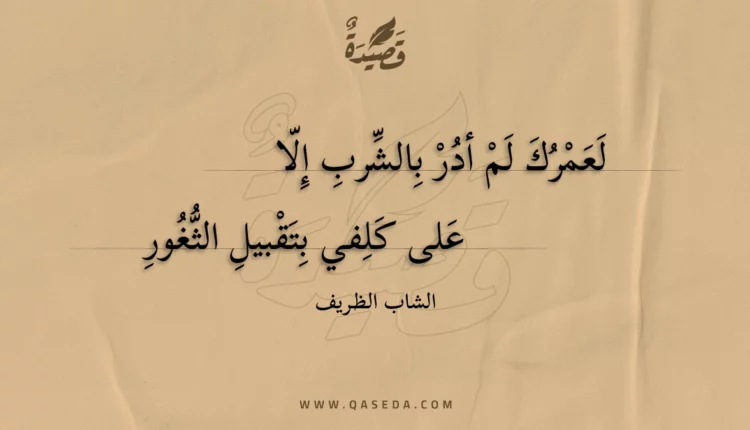 قَصِيدَةٌ
لَعَمْرُكَ لَمْ أدُرْ بِالشِّربِ إِلّا
عَلى كَلِفي بِتَقْبيلِ الثُّغُورِ
الشاب الظريف
WWW.QASEDA.COM